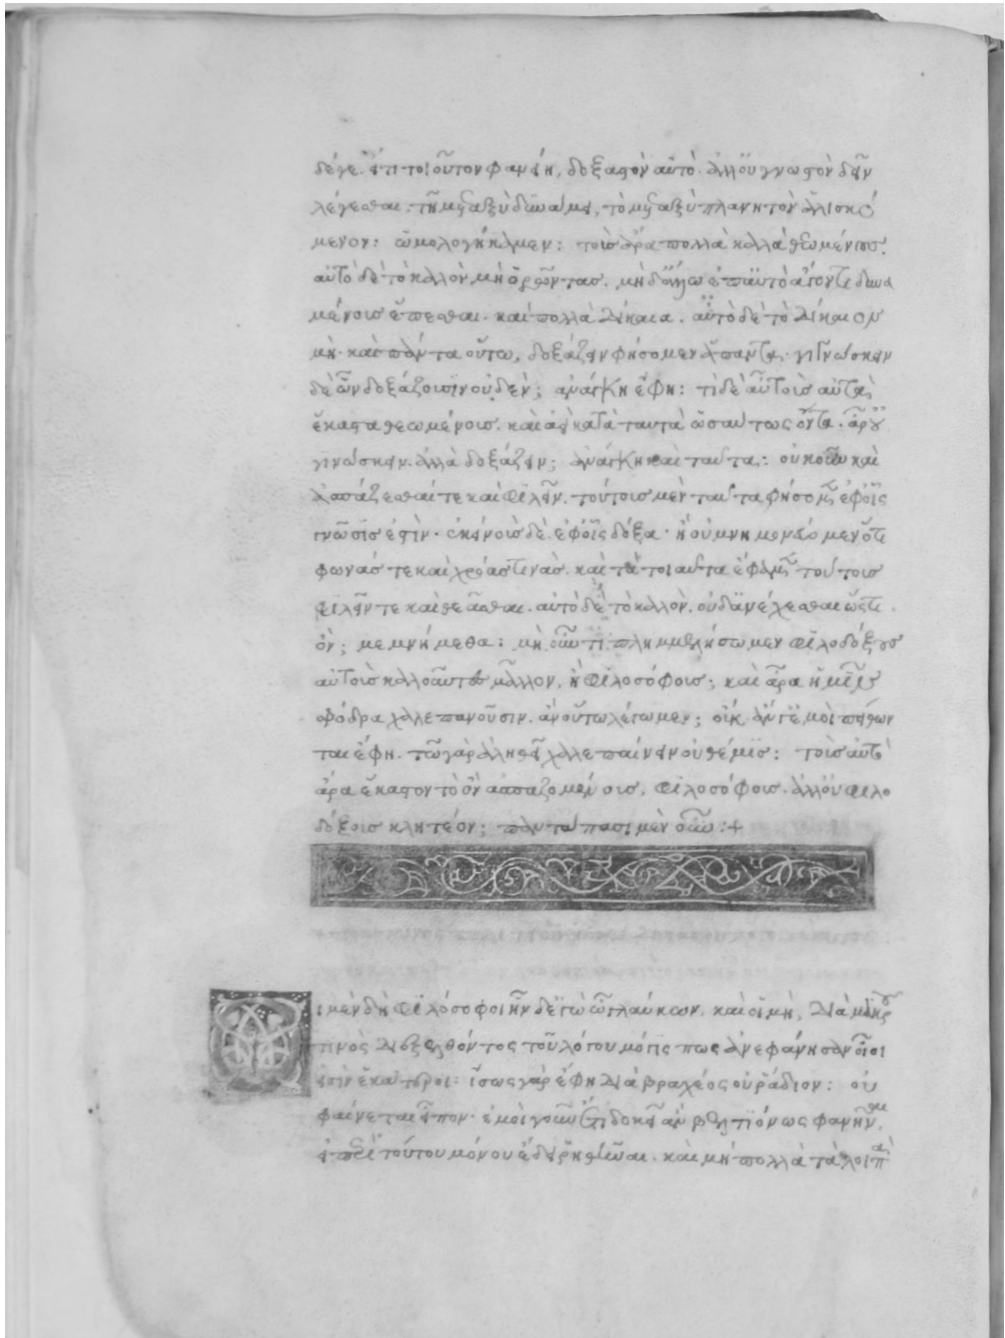 δέ γε ἔτι τοιοῦτον φανείη, δοξαστὸν αὐτὸ ἀλλ' οὐ γνωστὸν δεῖν
λέγεσθαι. τῇ μεταξὺ δυνάμει, τὸ μεταξὺ πλανητὸν ἁλισκό
μενον: ὡμολογήκαμεν: τοὺς ἄρα πολλὰ καλὰ θεωμένους.
αὐτὸ δὲ τὸ καλὸν μὴ ὁρῶντας. μηδ' ἄλλω ἐπ' αὐτὸ ἄγοντι δυνα
μένοις ἕπεσθαι. καὶ πολλὰ δίκαια. αὐτὸ δὲ τὸ δίκαιον
μή. καὶ πάντα οὕτω, δοξάζειν φήσομεν ἅπαντα. γιγνώσκειν
δὲ ὧν δοξάζουσιν οὐδέν; ἀνάγκη ἔφη: τί δὲ αὖ τοὺς αὐτὰ
ἕκαστα θεωμένοις. καὶ ἀεὶ κατὰ ταυτὰ ὡσαύτως ὄντα. ἆρ' οὐ
γινώσκειν ἀλλὰ δοξάζειν; ἀνάγκη καὶ ταῦτα: οὐκοῦν καὶ
ἀσπάζεσθαί τε καὶ φιλεῖν. τούτοις μὲν ταῦτα φήσομεν ἐφ' οἷς
γνῶσίς ἐστιν. ἐκείνοις δὲ ἐφ' οἷς δόξα. ἢ οὐ μνημονεύομεν ὅτι
φωνάς τε καὶ χρόας τινὰς. καὶ τὰ τοιαῦτα ἔφαμεν τούτοις
φιλεῖν τε καὶ θεᾶσθαι. αὐτὸ δὲ τὸ καλὸν. οὐδ' ἀνέχεσθαι ὥς τι
ὄν; μεμνήμεθα: μὴ οὖν τι πλημμελήσωμεν φιλοδόξους
αὐτοὺς καλοῦντες μᾶλλον, ἢ φιλοσόφοις; καὶ ἆρα ἡμῖν
σφόδρα χαλεπανοῦσιν. ἂν οὕτω λέγωμεν; οὐκ ἄν γέ μοι πείθων
ται ἔφη. τῷ γὰρ ἀληθεῖ χαλεπαίνειν οὐ θέμις: τοὺς αὐτὸ
ἄρα ἕκαστον τὸ ὂν ἀσπαζομένους. φιλοσόφοις. ἀλλ' οὐ φιλο
δόξοις κλητέον; παντάπασι μὲν οὖν:+
Οἱ μὲν δὴ φιλόσοφοι ἦν δ' ἐγὼ ὦ γλαύκων. καὶ οἱ μή. διὰ μακροῦ
τινὸς διεξελθόντος τοῦ λόγου μόγις πως ἀνεφάνησαν οἵ εἰσι
εἰσὶν ἑκάτεροι: ἴσως γὰρ ἔφη διὰ βραχέος οὐ ῥάδιον: οὐ
φαίνεται εἶπον. ἐμοὶ γοῦν ἔτι δοκεῖ ἂν βελτιόνως φανῆναι.
εἰ περὶ τούτου μόνου ἔδει ῥηθῆναι. καὶ μὴ πολλὰ τὰ λοιπὰ